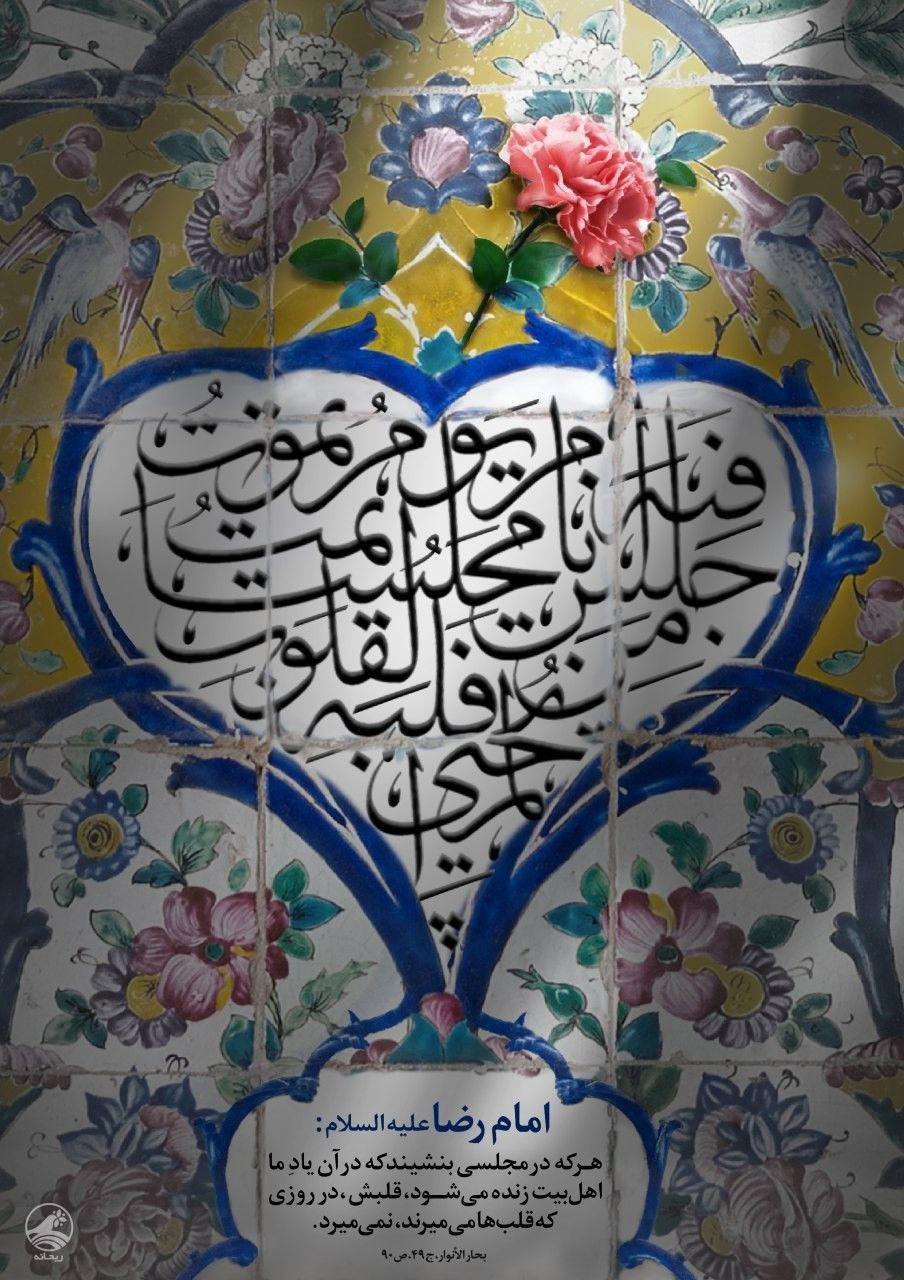 من جلس مجلسا يحيى فيه امرنا لم يمت قلبه يوم يموت القلوب
امام رضا علیه السلام:
هرکه در مجلسی بنشیند که در آن یادِ ما
اهل‌بیت زنده می‌شود، قلبش، در روزی
که قلب‌ها می‌میرند، نمی‌میرد.
بحارالأنوار، ج۴۹، ص۹۰
ریحانه